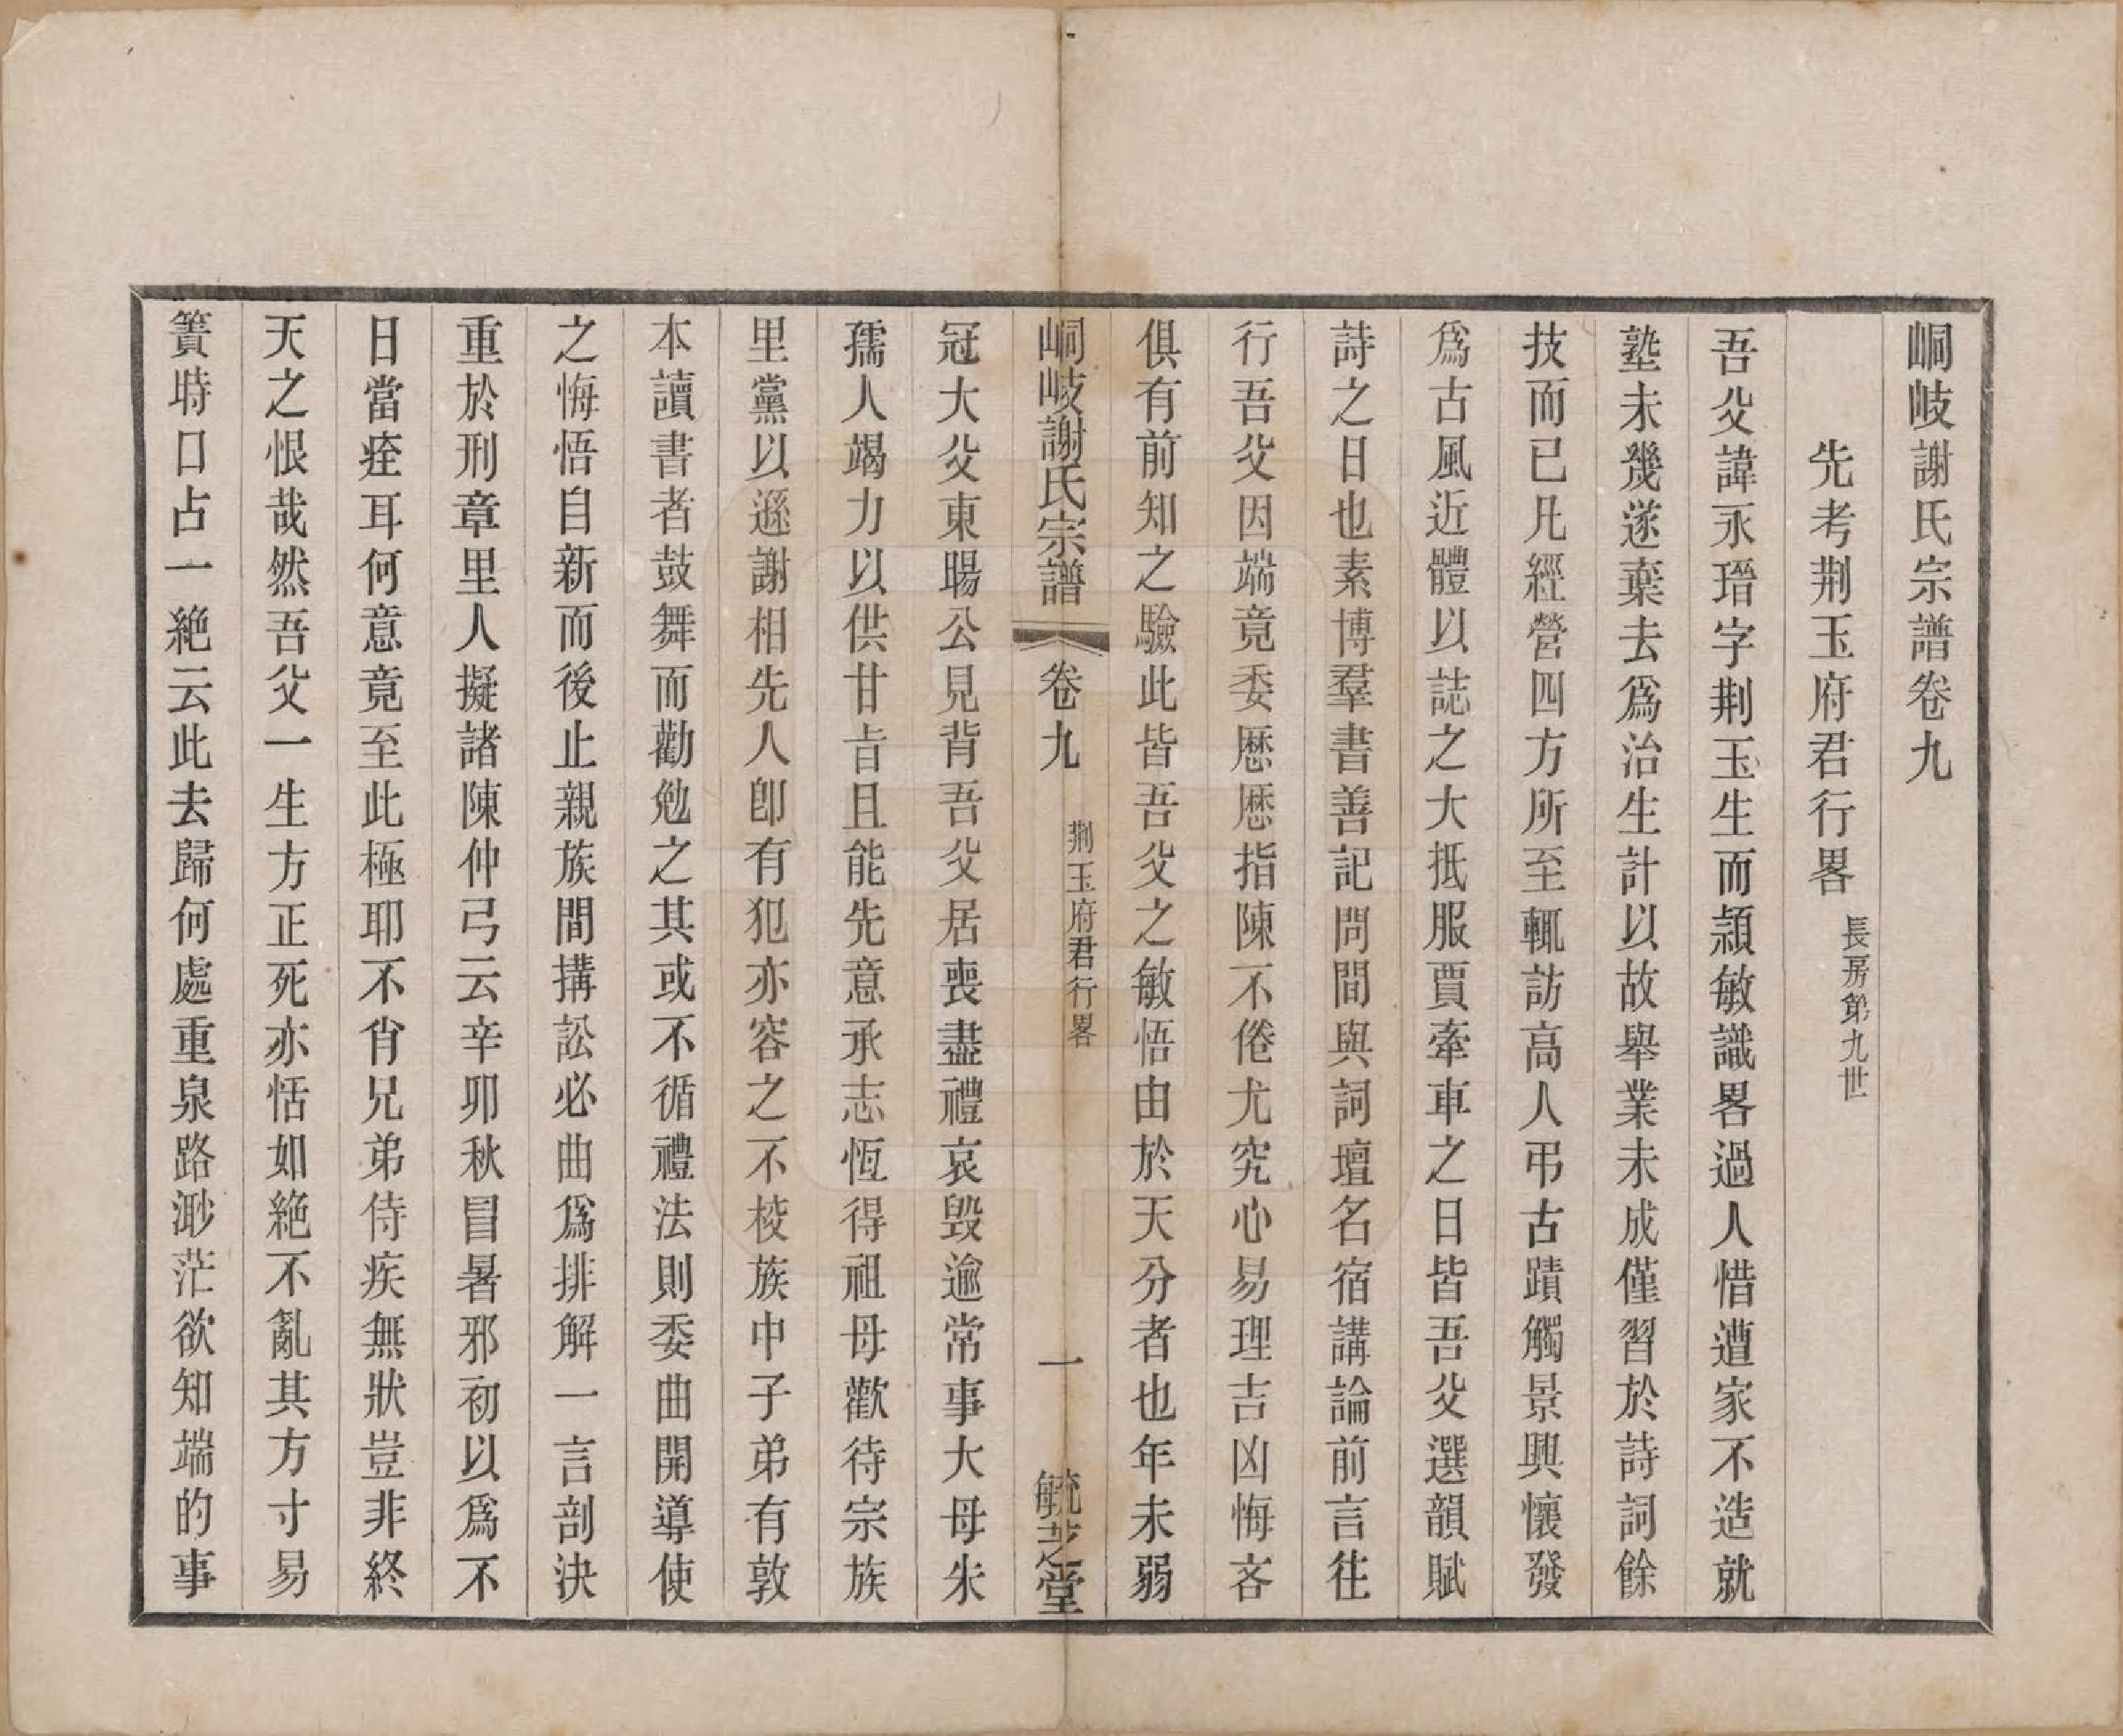 峒岐謝氏宗譜卷九
先考荆玉府君行畧 長房第九世
吾父諱永瑨字荆玉生而頴敏識畧過人惜遭家不造就
塾未幾遂棄去爲治生計以故舉業未成僅習於詩詞餘
技而已凡經營四方所至輒訪高人弔古蹟觸景興懷發
爲古風近體以誌之大抵服賈牽車之日皆吾父選韻賦
詩之日也素博羣書善記問間與詞壇名宿講論前言往
行吾父因端竟委歷歷指陳不倦尤究心易理吉凶悔吝
俱有前知之驗此皆吾父之敏悟由於天分者也年未弱
峒岐謝氏宗譜 卷九 荆玉府君行畧 一 毓芝堂
冠大父東暘公見背吾父居喪盡禮哀毀逾常事大母朱
孺人竭力以供甘旨且能先意承志恆得祖母歡待宗族
里黨以遜謝相先人卽有犯亦容之不校族中子弟有敦
本讀書者鼓舞而勸勉之其或不循禮法則委曲開導使
之悔悟自新而後止親族間搆訟必曲爲排解一言剖決
重於刑章里人擬諸陳仲弓云辛卯秋冒暑邪初以爲不
日當痊耳何意竟至此極耶不肖兄弟侍疾無狀豈非終
天之恨哉然吾父一生方正死亦恬如絕不亂其方寸易
簀時口占一絕云此去歸何處重泉路渺茫欲知端的事